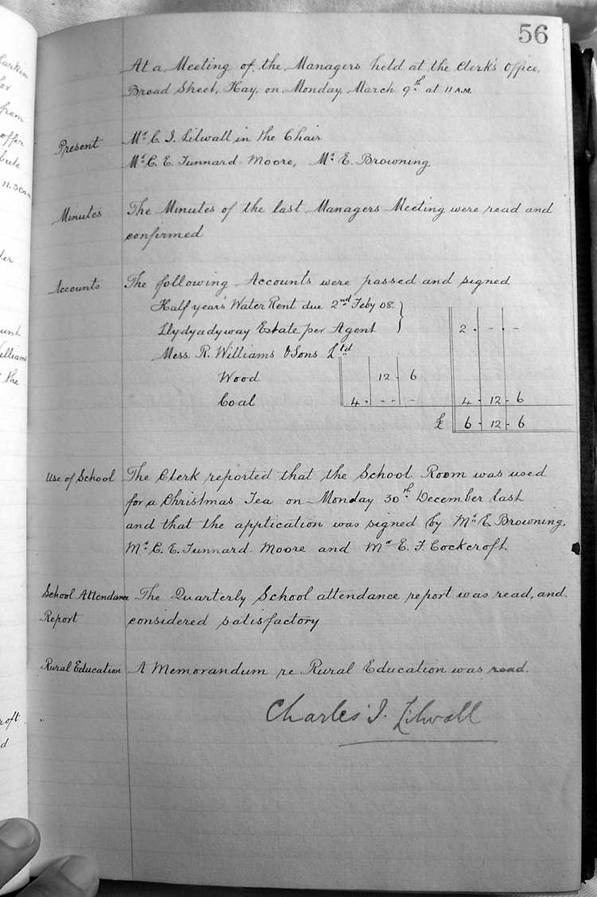 56
At a Meeting of the Managers held at the Clerk's Office,
Broad Street, Hay, on Monday, March 9th at 11 A.M.
Present Mr C. I. Lilwall in the Chair
Mr C. E. Tunnard Moore, Mr E. Browning.
Minutes The Minutes of the last Managers Meeting were read and
confirmed
Accounts The following Accounts were passed and signed
Half year's Water Rent due 2nd Feby 08.
Llydyadyway Estate per Agent } 2 . - . -
Mess. R. Williams & Sons Ltd
Wood 12 . 6
Coal 4 . - . - 4 . 12 . 6
£ 6 . 12 . 6
Use of School The Clerk reported that the School Room was used
for a Christmas Tea on Monday 30th December last
and that the application was signed by Mr E. Browning,
Mr C. E. Tunnard Moore and Mr E. F. Cockcroft.
School Attendance The Quarterly School attendance report was read, and
Report considered satisfactory
Rural Education A Memorandum re Rural Education was read.
Charles I. Lilwall